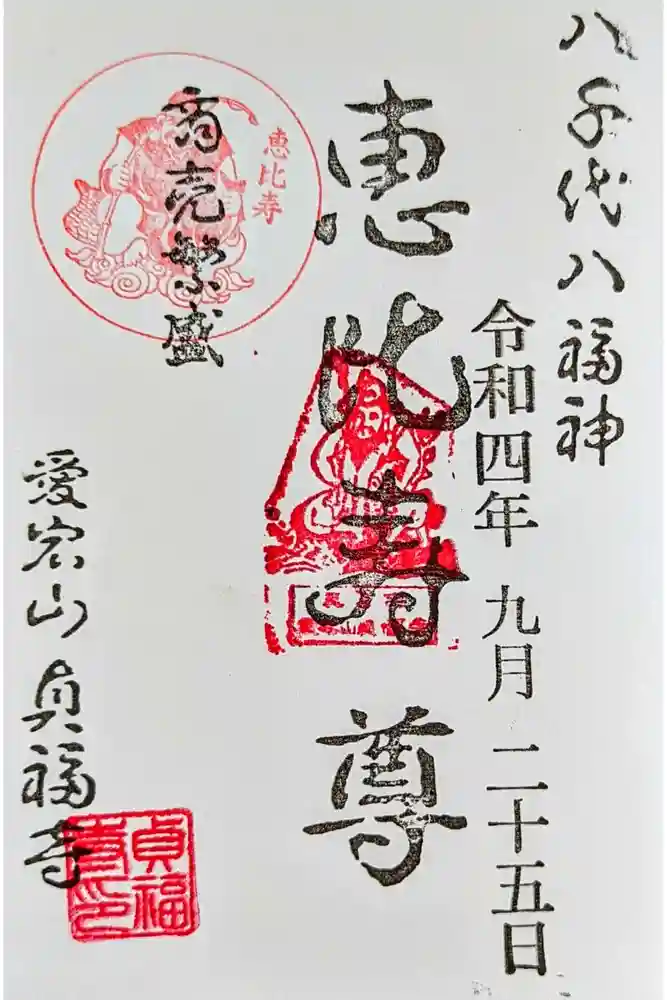 八千代八福神
令和四年 九月 二十五日
恵比寿尊
恵比寿
商売繁盛
愛宕山 貞福寺
貞福
寺印